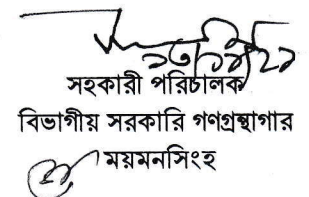 সহকারী পরিচালক
বিভাগীয় সরকারি গণগ্রন্থাগার
ময়মনসিংহ